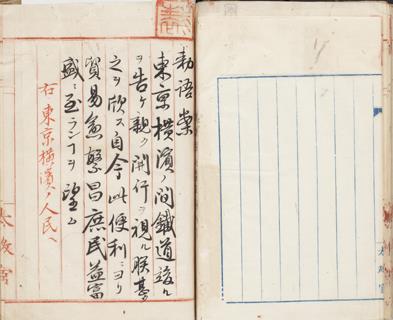 勅語案
東京横濱ノ間鐵道竣ル
ヲ告ケ親ク開行ヲ視ル朕甚タ
之ヲ欣ス自今此便利ニヨリ
貿易愈繁昌庶民益富
盛ニ至ランコヲ望ム
右東京横濱ノ人民ヘ
太政官
太政官